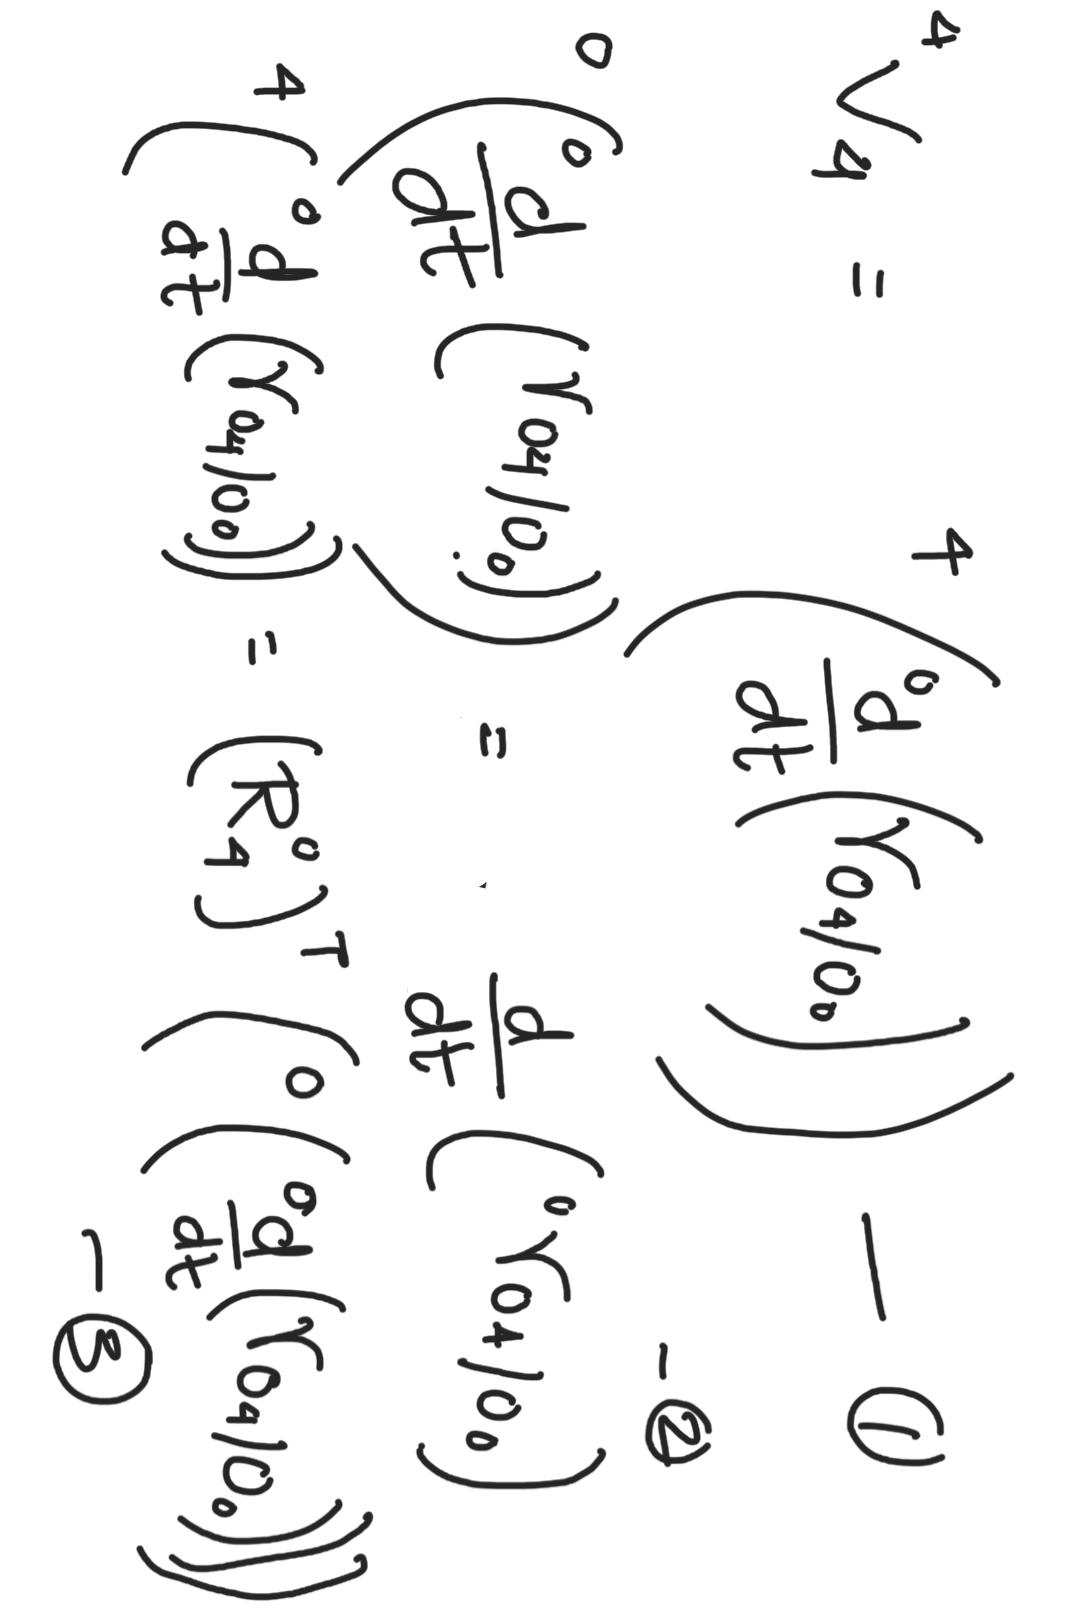 ⁴V₄ = ⁴(⁰d/dt (r_{O₄/O₀})) — ①
⁰(⁰d/dt (r_{O₄/O₀})) = d/dt (⁰r_{O₄/O₀}) - ②
⁴(⁰d/dt (r_{O₄/O₀})) = (R⁰₄)ᵀ (⁰(⁰d/dt (r_{O₄/O₀}))) - ③